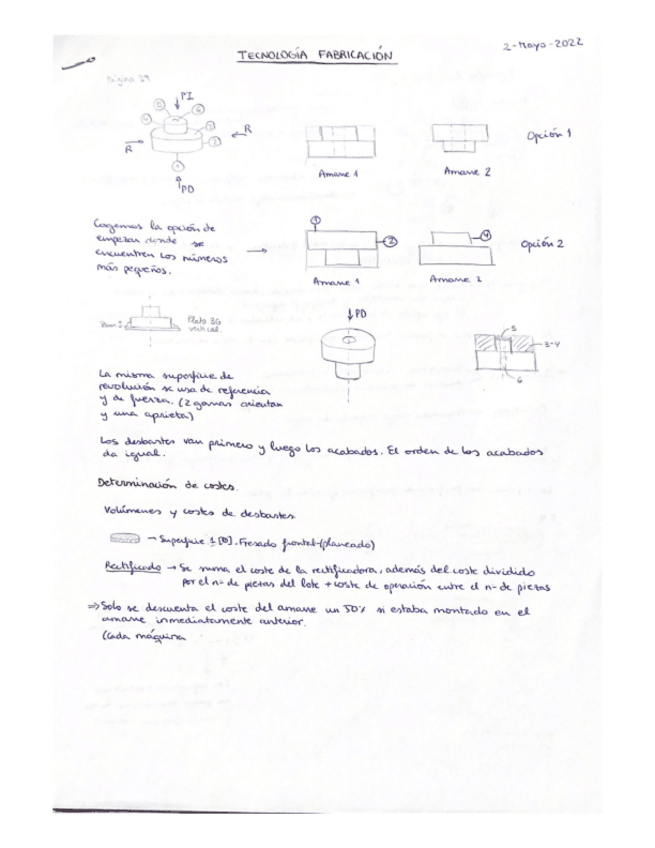 2-Mayo-2022
TECNOLOGÍA FABRICACIÓN
Página 39
PI
5
6
4
3
2
1
R
R
PD
Amarre 1
Amarre 2
Opción 1
Cogemos la opción de
empezar donde se
encuentren los números
más pequeños.
1
2
4
Amarre 1
Amarre 2
Opción 2
Plato 3G
vertical.
PD
5
3-4
6
La misma superficie de
revolución se usa de referencia
y de fuerza. (2 garras orientan
y una aprieta)
Los desbastes van primero y luego los acabados. El orden de los acabados
da igual.
Determinación de costes.
Volúmenes y costes de desbastes
→ Superficie 1 [D]. Fresado frontal (planeado)
Rectificado → Se suma el coste de la rectificadora, además del coste dividido
por el nº de piezas del lote + coste de operación entre el nº de piezas
⇒ Solo se descuenta el coste del amarre un 50% si estaba montado en el
amarre inmediatamente anterior.
(Cada máquina